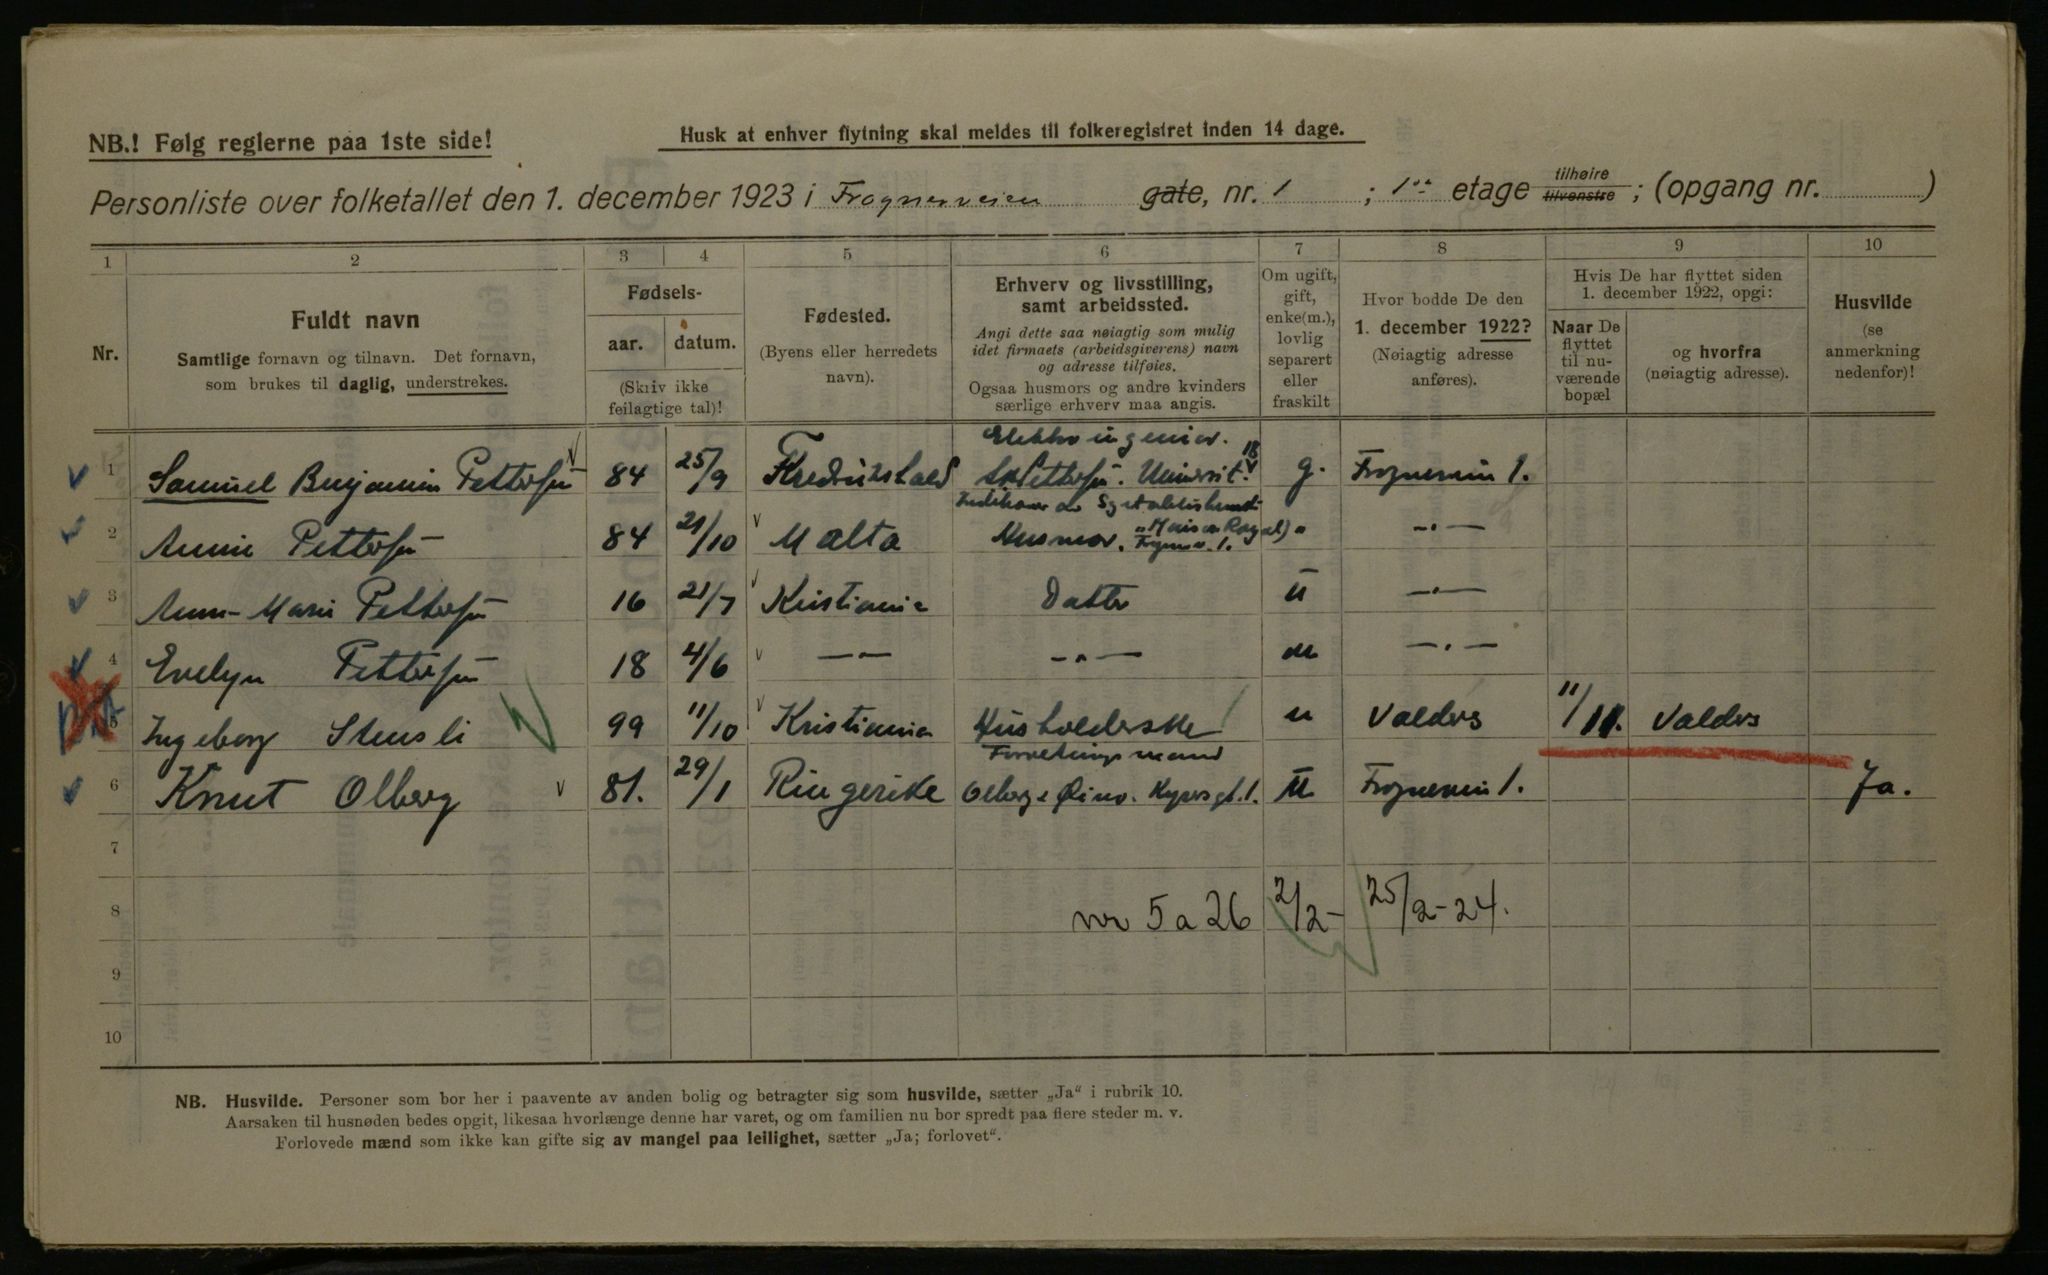 NB.! Følg reglerne paa 1ste side!
Husk at enhver flytning skal meldes til folkeregistret inden 14 dage.
Personliste over folketallet den 1. december 1923 i Frognerveien gate, nr. 1 ; 1ste etage tilhøire tilvenstre ; (opgang nr. )
1 2 3 4 5 6 7 8 9 10
Nr.
Fuldt navn
Samtlige fornavn og tilnavn. Det fornavn,
som brukes til daglig, understrekes.
Fødsels-
aar. datum.
(Skriv ikke
feilagtige tal)!
Fødested.
(Byens eller herredets
navn).
Erhverv og livsstilling,
samt arbeidssted.
Angi dette saa nøiagtig som mulig
idet firmaets (arbeidsgiverens) navn
og adresse tilføies.
Ogsaa husmors og andre kvinders
særlige erhverv maa angis.
Om ugift,
gift,
enke(m.),
lovlig
separert
eller
fraskilt
Hvor bodde De den
1. december 1922?
(Nøiagtig adresse
anføres).
Hvis De har flyttet siden
1. december 1922, opgi:
Naar De
flyttet
til nu-
værende
bopæl
og hvorfra
(nøiagtig adresse).
Husvilde
(se
anmerkning
nedenfor)!
Elektroingeniør.
1 Samuel Benjamin Pettersen 84 25/9 Fredrikshald Pettersen. Universit. 18 g. Frognervein 1.
Indehaver av
2 Annie Pettersen 84 21/10 Malta Husmor. „Maison Royal) " —"—
Frognerv. 1.
3 Anne-Marie Pettersen 16 21/7 Kristiania Datter u —"—
4 Evelyn Pettersen 18 4/6 —"— —"— u —"—
5 Ingeborg Stensli 99 11/10 Kristiania Husholderske u Valders 11/11. Valders
Forretningsmand
6 Knut Olberg 81. 29/1 Ringerike Olberg & Kysersgt. 1. u Frognervein 1. Ja.
7
8 nr 5 a 26 2/2- 25/2-24.
9
10
NB. Husvilde. Personer som bor her i paavente av anden bolig og betragter sig som husvilde, sætter „Ja“ i rubrik 10.
Aarsaken til husnøden bedes opgit, likesaa hvorlænge denne har varet, og om familien nu bor spredt paa flere steder m. v.
Forlovede mænd som ikke kan gifte sig av mangel paa leilighet, sætter „Ja; forlovet“.